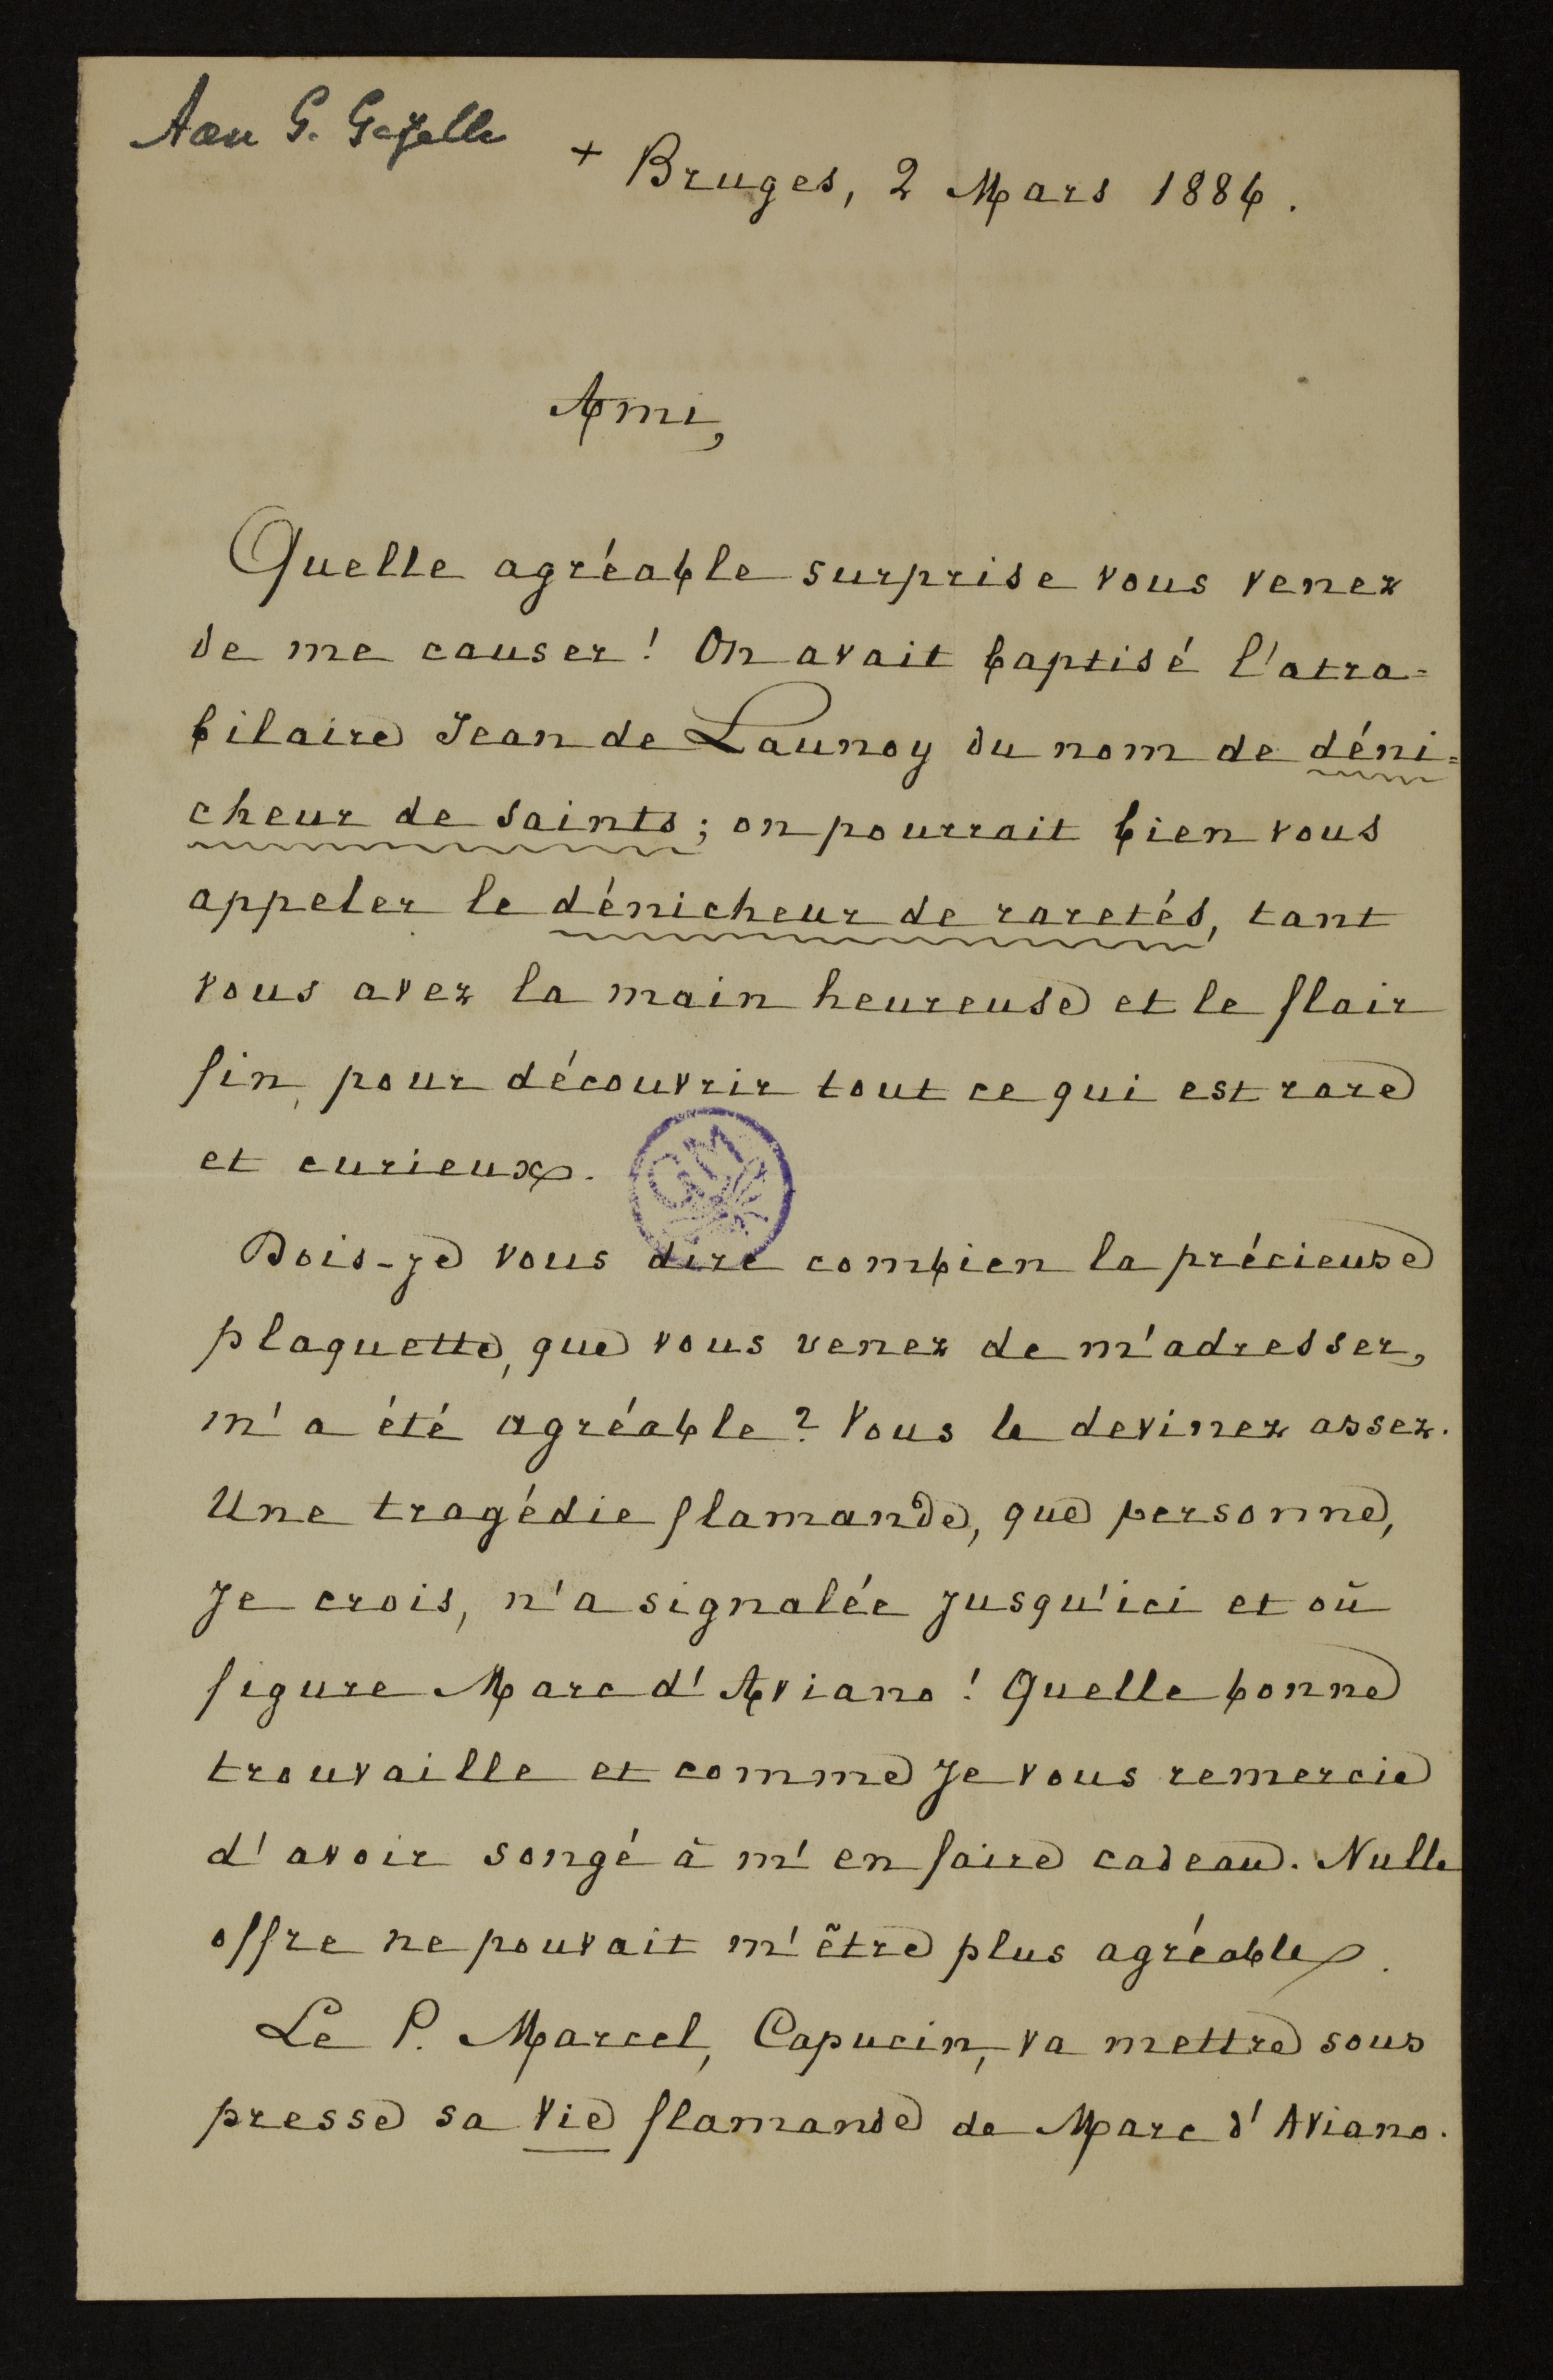 Aan G. Gezelle
+ Bruges, 2 Mars 1886.
Ami,
Quelle agréable surprise vous venez
de me causer! On avait baptisé l'atra=
bilaire Jean de Launoy du nom de déni=
cheur de saints; on pourrait bien vous
appeler le dénicheur de raretés, tant
vous avez la main heureuse et le flair
fin, pour découvrir tout ce qui est rare
et curieux.
GM
Dois-je vous dire combien la précieuse
plaquette, que vous venez de m'adresser,
m'a été agréable? Vous le devinez assez.
Une tragédie flamande, que personne,
je crois, n'a signalée jusqu'ici et où
figure Marc d'Aviano! Quelle bonne
trouvaille et comme je vous remercie
d'avoir songé à m'en faire cadeau. Nulle
offre ne pouvait m'être plus agréable.
Le P. Marcel, Capucin, va mettre sous
presse sa Vie flamande de Marc d'Aviano.